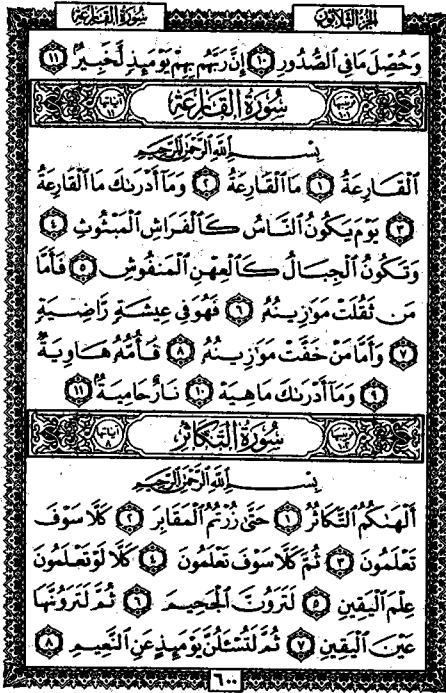 الجزء الثلاثون
سورة القارعة
وَحُصِّلَ مَا فِي ٱلصُّدُورِ ١٠ إِنَّ رَبَّهُم بِهِمْ يَوْمَئِذٍ لَّخَبِيرٌۢ ١١
ترتيبها ١٠١ سُورَةُ القَارِعَةِ آياتها ١١
بِسْمِ ٱللَّهِ ٱلرَّحْمَٰنِ ٱلرَّحِيمِ
ٱلْقَارِعَةُ ١ مَا ٱلْقَارِعَةُ ٢ وَمَآ أَدْرَىٰكَ مَا ٱلْقَارِعَةُ
٣ يَوْمَ يَكُونُ ٱلنَّاسُ كَٱلْفَرَاشِ ٱلْمَبْثُوثِ ٤
وَتَكُونُ ٱلْجِبَالُ كَٱلْعِهْنِ ٱلْمَنفُوشِ ٥ فَأَمَّا
مَن ثَقُلَتْ مَوَٰزِينُهُۥ ٦ فَهُوَ فِي عِيشَةٍ رَّاضِيَةٍ
٧ وَأَمَّا مَنْ خَفَّتْ مَوَٰزِينُهُۥ ٨ فَأُمُّهُۥ هَاوِيَةٌ
٩ وَمَآ أَدْرَىٰكَ مَا هِيَهْ ١٠ نَارٌ حَامِيَةٌۢ ١١
ترتيبها ١٠٢ سُورَةُ التَّكَاثُرِ آياتها ٨
بِسْمِ ٱللَّهِ ٱلرَّحْمَٰنِ ٱلرَّحِيمِ
أَلْهَىٰكُمُ ٱلتَّكَاثُرُ ١ حَتَّىٰ زُرْتُمُ ٱلْمَقَابِرَ ٢ كَلَّا سَوْفَ
تَعْلَمُونَ ٣ ثُمَّ كَلَّا سَوْفَ تَعْلَمُونَ ٤ كَلَّا لَوْ تَعْلَمُونَ
عِلْمَ ٱلْيَقِينِ ٥ لَتَرَوُنَّ ٱلْجَحِيمَ ٦ ثُمَّ لَتَرَوُنَّهَا
عَيْنَ ٱلْيَقِينِ ٧ ثُمَّ لَتُسْـَٔلُنَّ يَوْمَئِذٍ عَنِ ٱلنَّعِيمِ ٨
٦٠٠